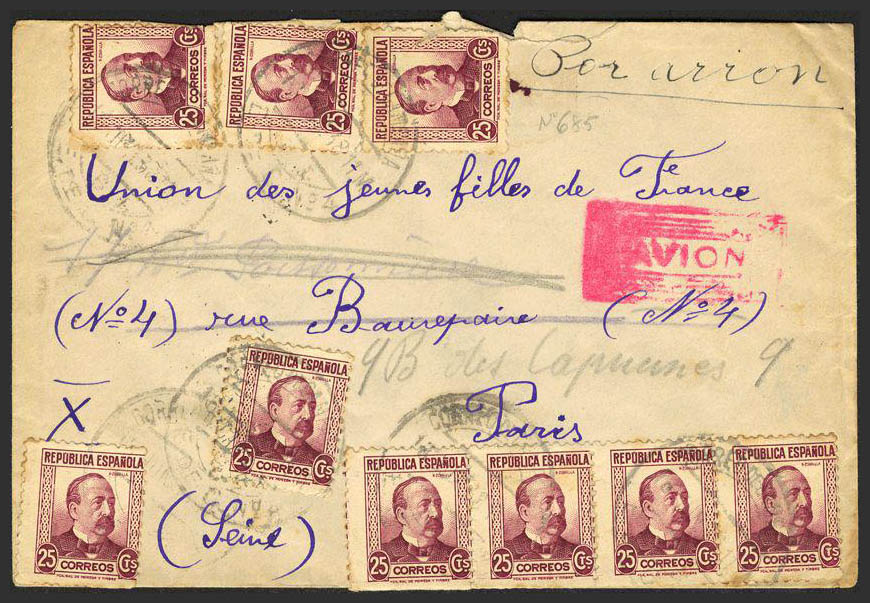 REPUBLICA ESPAÑOLA 25 CORREOS Cts
REPUBLICA ESPAÑOLA 25 CORREOS Cts
REPUBLICA ESPAÑOLA 25 CORREOS Cts
Por avion
Nº 685
Union des jeunes filles de France
AVION
17
(Nº 4) rue Baurepaire (Nº 4)
9 B des Capucines 9
X
Paris
REPUBLICA ESPAÑOLA
25 CORREOS Cts
(Seine)
REPUBLICA ESPAÑOLA
25 CORREOS Cts
REPUBLICA ESPAÑOLA
25 CORREOS Cts
REPUBLICA ESPAÑOLA
25 CORREOS Cts
REPUBLICA ESPAÑOLA
25 CORREOS Cts
REPUBLICA ESPAÑOLA
25 CORREOS Cts